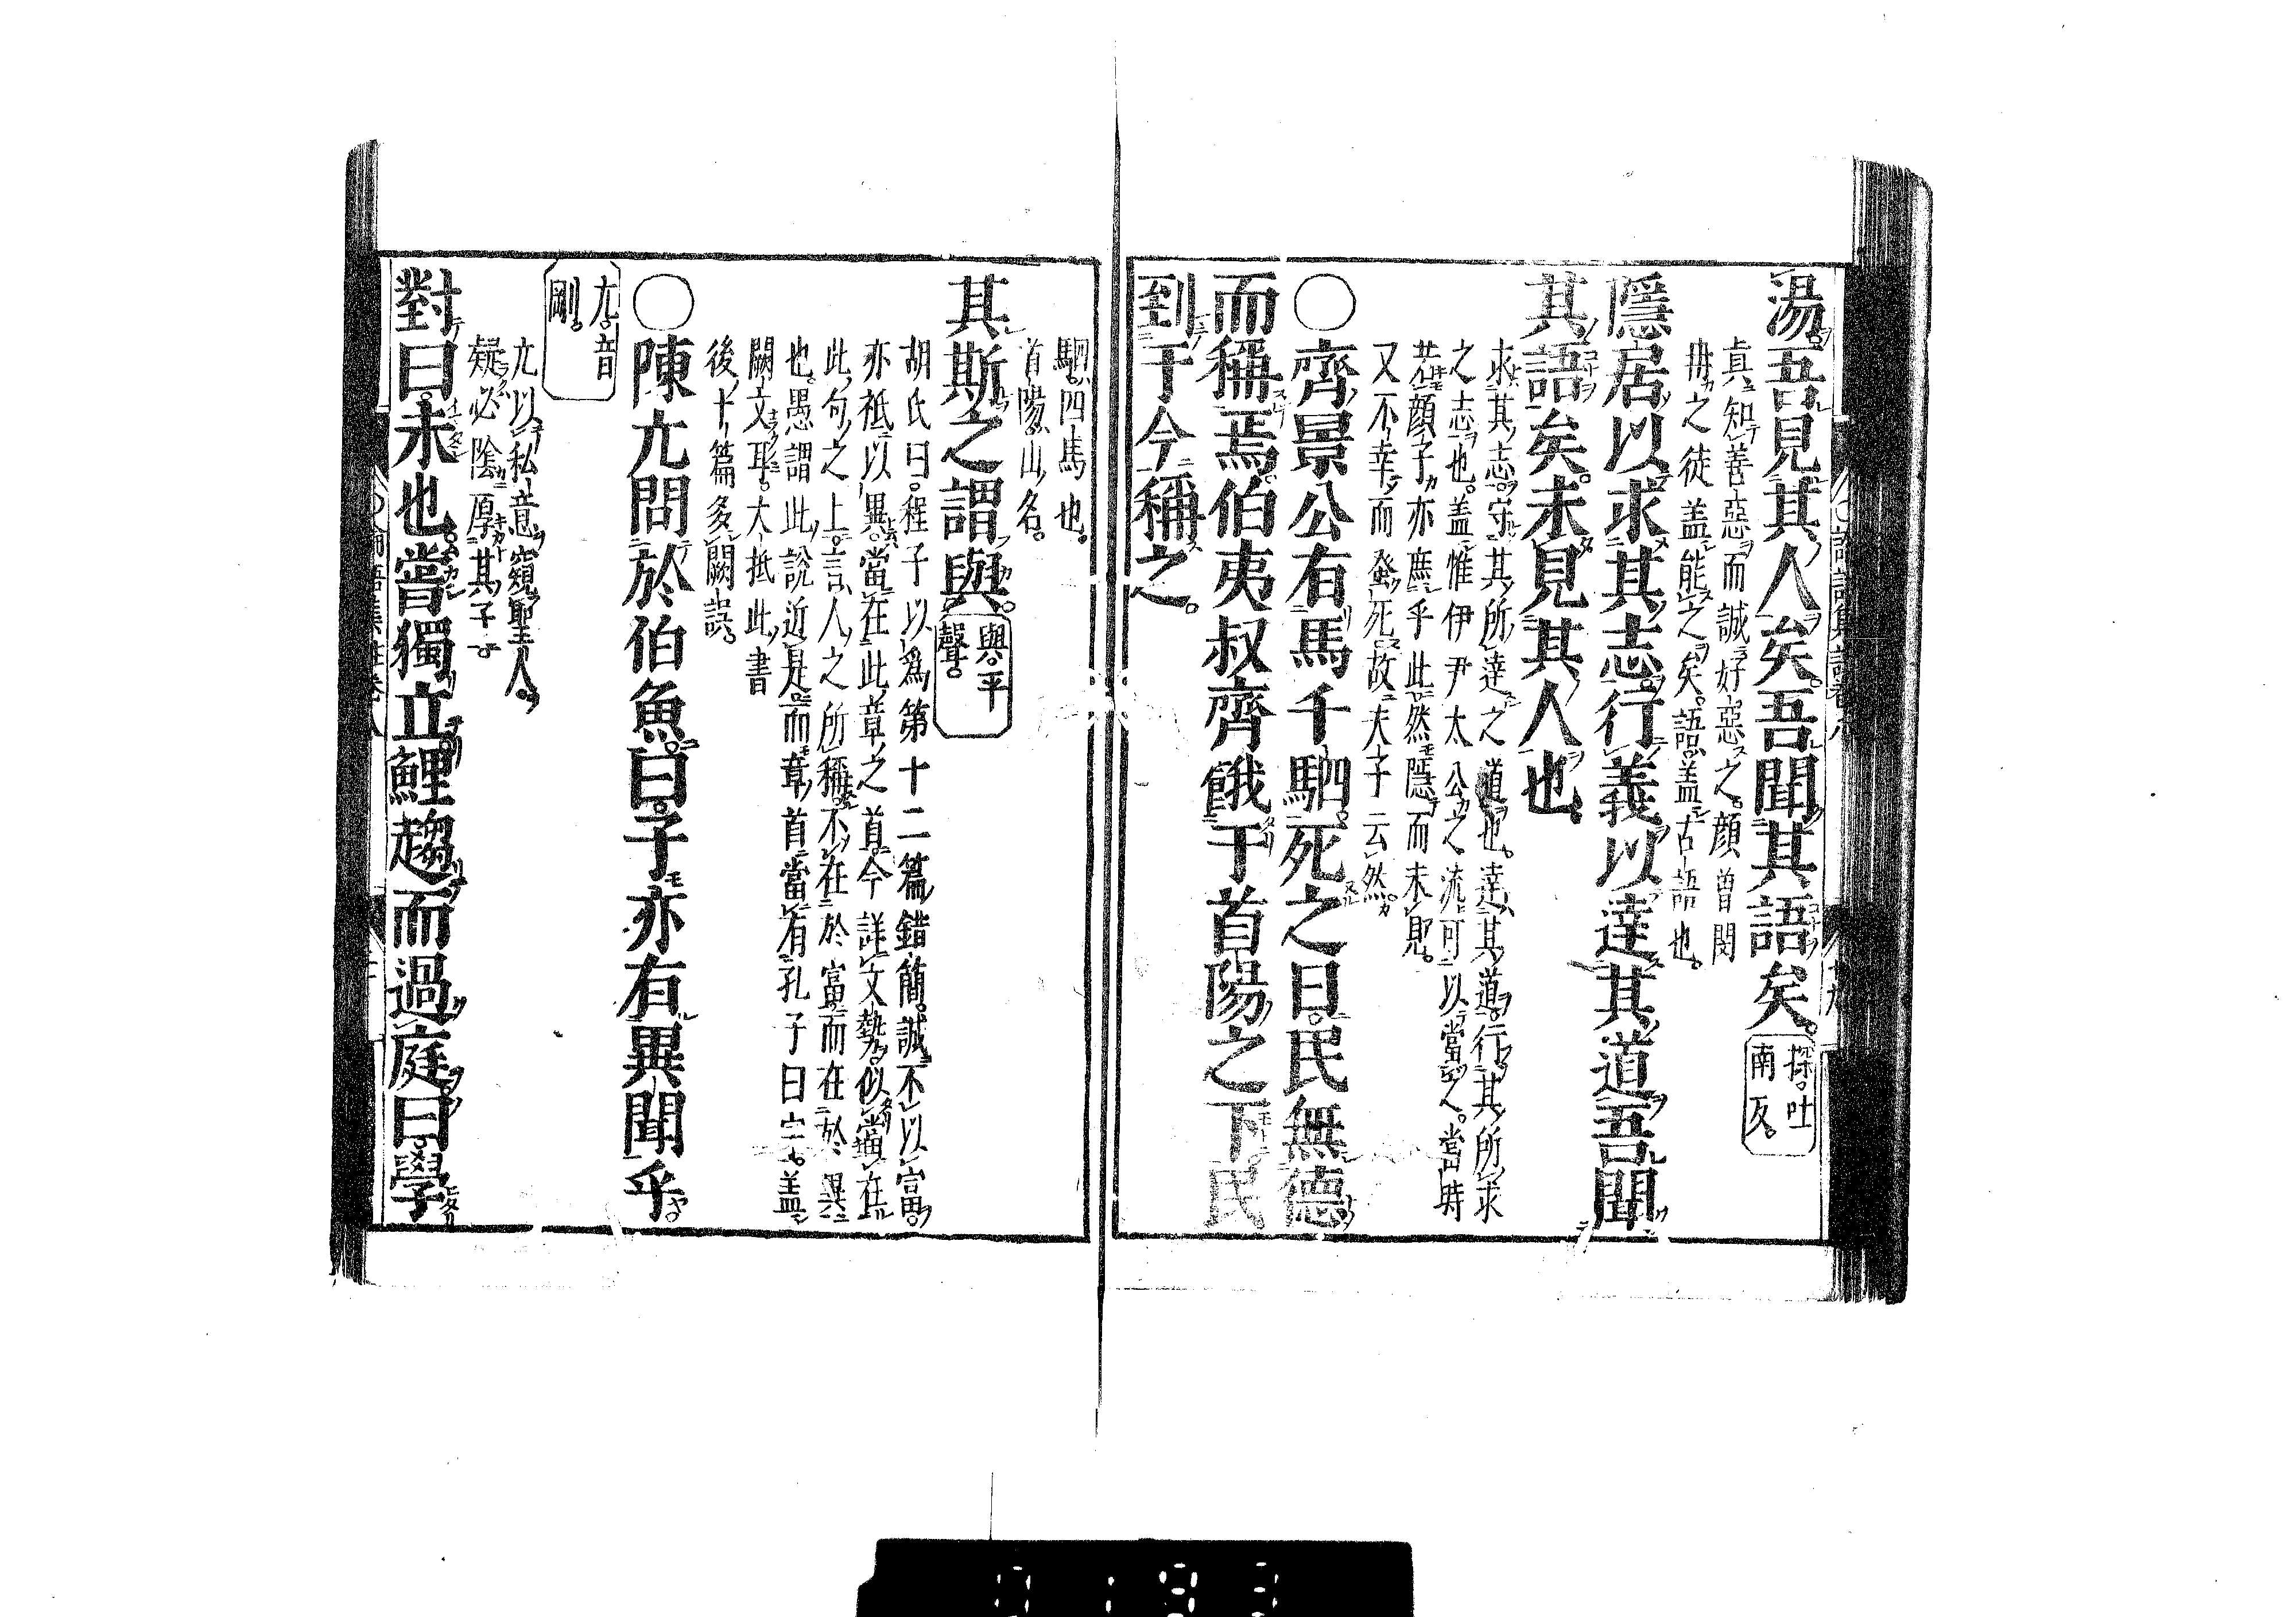 湯。吾見其人矣。吾聞其語矣。
探。吐
南反。
真知善惡而誠好惡之。顔曾閔
冉之徒蓋能之矣。語蓋古語也。
隱居以求其志。行義以達其道。吾聞
其語矣。未見其人也。
求其志。守其所達之道也。達其道。行其所求
之志也。蓋惟伊尹太公之流可以當之。當時
若顔子亦庶乎此。然隱而未見。
又不幸而蚤死。故夫子云然。
○齊景公有馬千駟。死之日。民無德
而稱焉。伯夷叔齊餓于首陽之下。民
到于今稱之。
駟。四馬也。
首陽。山名。
其斯之謂與。
與。平
聲。
胡氏曰。程子以爲第十二篇錯簡。誠不以富。
亦祇以異。當在此章之首。今詳文勢。似當在
此句之上。言人之所稱。不在於富。而在於異
也。愚謂此說近是。而章首當有孔子曰字。蓋
闕文耳。大抵此書
後十篇多闕誤。
○陳亢問於伯魚曰。子亦有異聞乎。
亢。音
剛。
亢以私意窺聖人。
疑必陰厚其子。
對曰。未也。嘗獨立。鯉趨而過庭。曰。學